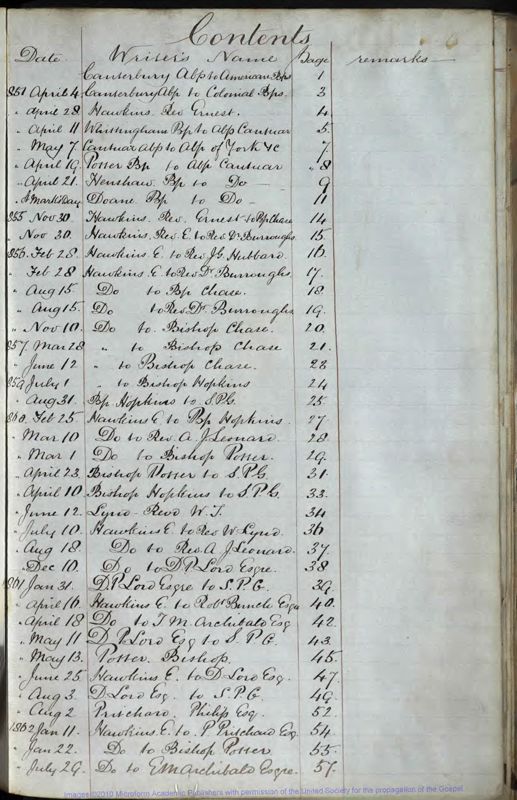 Contents
Date. Writer's Name Page remarks
Canterbury Abp to American Bps 1
851 April 4 Canterbury Abp to Colonial Bps. 3
" April 28 Hawkins Rev Ernest. 4
" April 11 Whittingham Bp to Abp Cantuar 5
" May 7 Cantuar Abp to Abp of York &c 7
" April 19 Potter Bp to Abp Cantuar " 8
" April 21. Henshaw Bp to Do 9
" St Mark's Day Doane Bp to Do 11
855 Nov 30 Hawkins. Rev. Ernest to Bp Chase 14
" Nov 30. Hawkins. Rev E. to Rev Dr Burroughs 15.
856. Feb 28. Hawkins E. to Rev J G. Hubbard 16.
" Feb 28 Hawkins E. to Rev Dr Burroughs 17.
" Aug 15 Do to Bp Chase. 18
" Aug 15. Do to Rev. Dr. Burroughs 19.
" Nov 10. Do to Bishop Chase. 20
857. Mar 28 " to Bishop Chase 21.
" June 12 " to Bishop Chase. 22
859 July 1 " to Bishop Hopkins 24
" Aug 31. Bp Hopkins to S.P.G. 25
860. Feb 25 Hawkins E to Bp Hopkins. 27
" Mar 10 Do to Rev. A. J Leonard. 28
" Mar 1 Do to Bishop Potter. 29.
" April 23 Bishop Potter to S.P.G 31
" April 10. Bishop Hopkins to S.P.G. 33.
" June 12 Revd W. T. 34
" July 10. Hawkins E. to Rev W. 36
" Aug 18. Do to Rev. A J Leonard. 37.
" Dec 10. Do to D P Lord Esqre. 38
861 Jan 31. D. P. Lord Esqre to S.P.G. 39.
" April 16. Hawkins E. to Robt Bunch Esqr 40.
" April 18 Do to T M Archibald Esq 42.
" May 11 D. P. Lord Esq to S. P. G. 43.
" May 13. Potter. Bishop. 45.
" June 25 Hawkins E. to D Lord Esq. 47.
" Aug 3. D Lord Esq. to S.P.G. 49.
" Aug 2 Pritchard, Philip Esq. 52.
1862 Jan 11. Hawkins. E. to. P Pritchard Esq 54.
" Jan 22. Do to Bishop Potter 55.
" July 29. Do to E M Archibald Esqre. 57.
Images ©2010 Microform Academic Publishers with permission of the United Society for the propagation of the Gospel